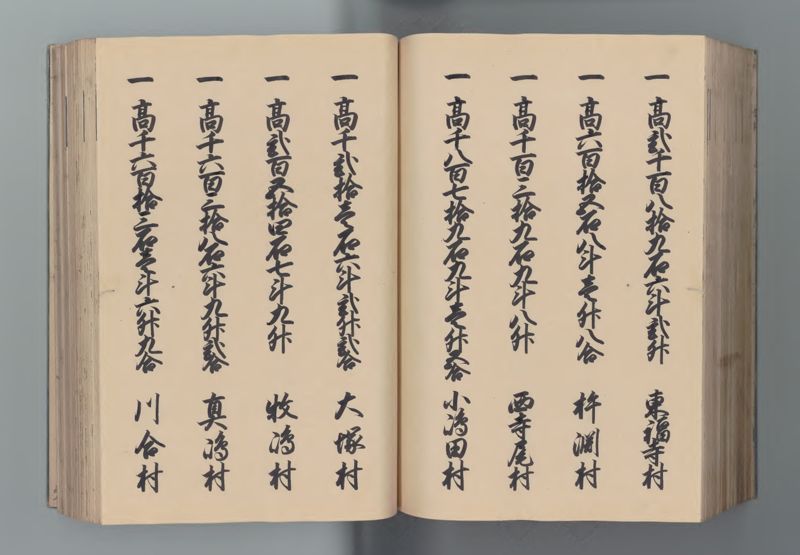 一 高弐千百八拾九石六斗弐升 東福寺村
一 高六百拾五石八斗壱升八合 杵淵村
一 高千百三拾九石九斗八升 西寺尾村
一 高千八百七拾九石九斗壱升五合 小嶋田村
一 高千弐拾壱石六斗弐升弐合 大塚村
一 高弐百五拾四石七斗九升 牧嶋村
一 高千六百三拾八石六斗九升弐合 真嶋村
一 高千六百拾三石壱斗六升九合 川合村